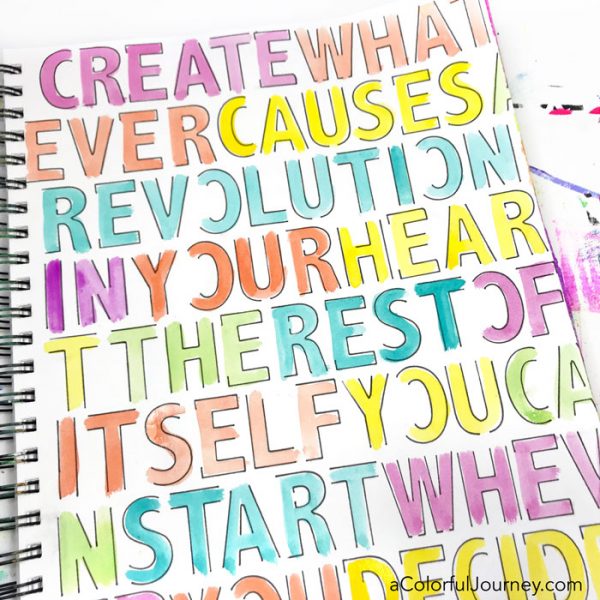 CREATE WHAT
EVER CAUSES A
REVOLUTION
IN YOUR HEAR
T THE REST OF
ITSELF YOU CA
N START WHEV
ER YOU DECIDE
aColorfulJourney.com